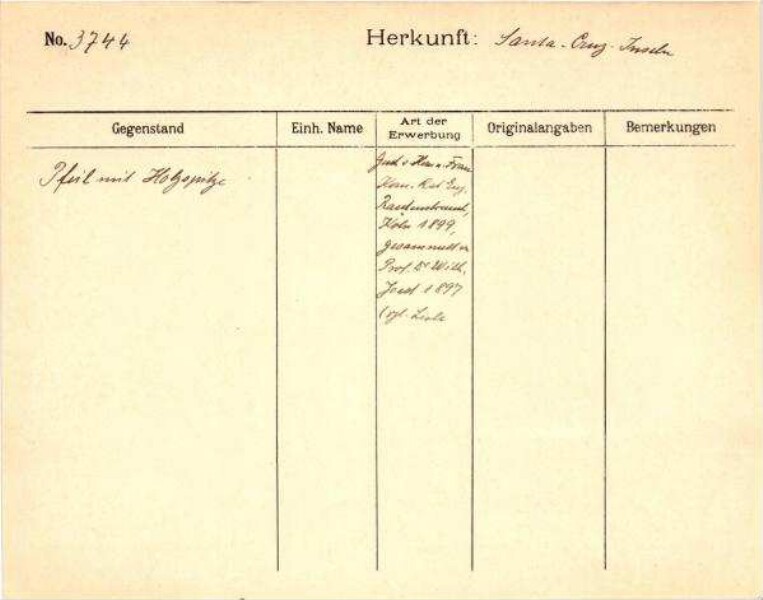 No. 3744 Herkunft: Santa-Cruz-Inseln
Gegenstand Einh. Name Art der Erwerbung Originalangaben Bemerkungen
Pfeil mit Holzspitze
Frau
Eug.
Rautenstrauch,
Köln 1899,
gesammelt v.
Prof. Dr Wilh.
Joest 1897
(vgl. Liste